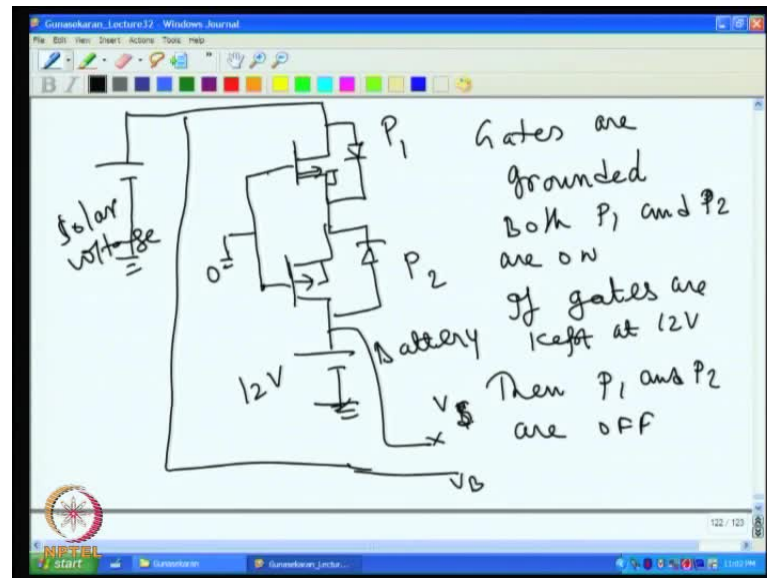 Gunasekaran_Lecture32 - Windows Journal
File Edit View Insert Actions Tools Help
B I
Solar
voltage
P1
P2
12V
Battery
VB
Gates are
grounded
Both P1 and P2
are on
If gates are
kept at 12V
Then P1 and P2
are OFF
122 / 123
NPTEL
start
Gunasekaran
Gunasekaran_Lectur...
11:02 PM